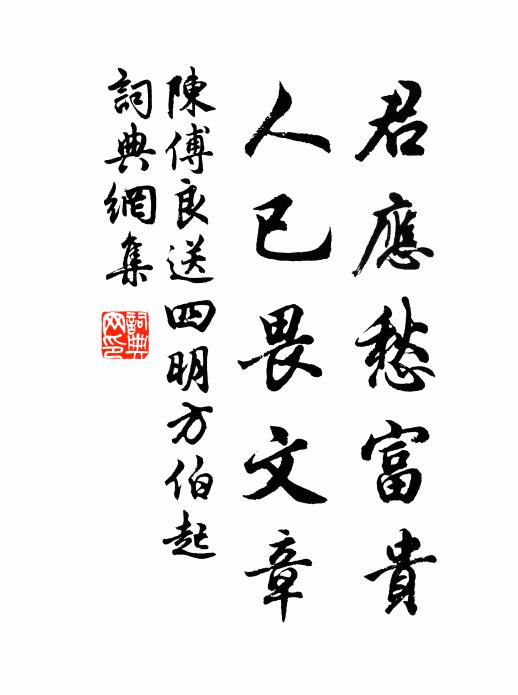 君應愁富貴
人已畏文章
陳傅良送四明方伯起
詞典網集
詞典网印